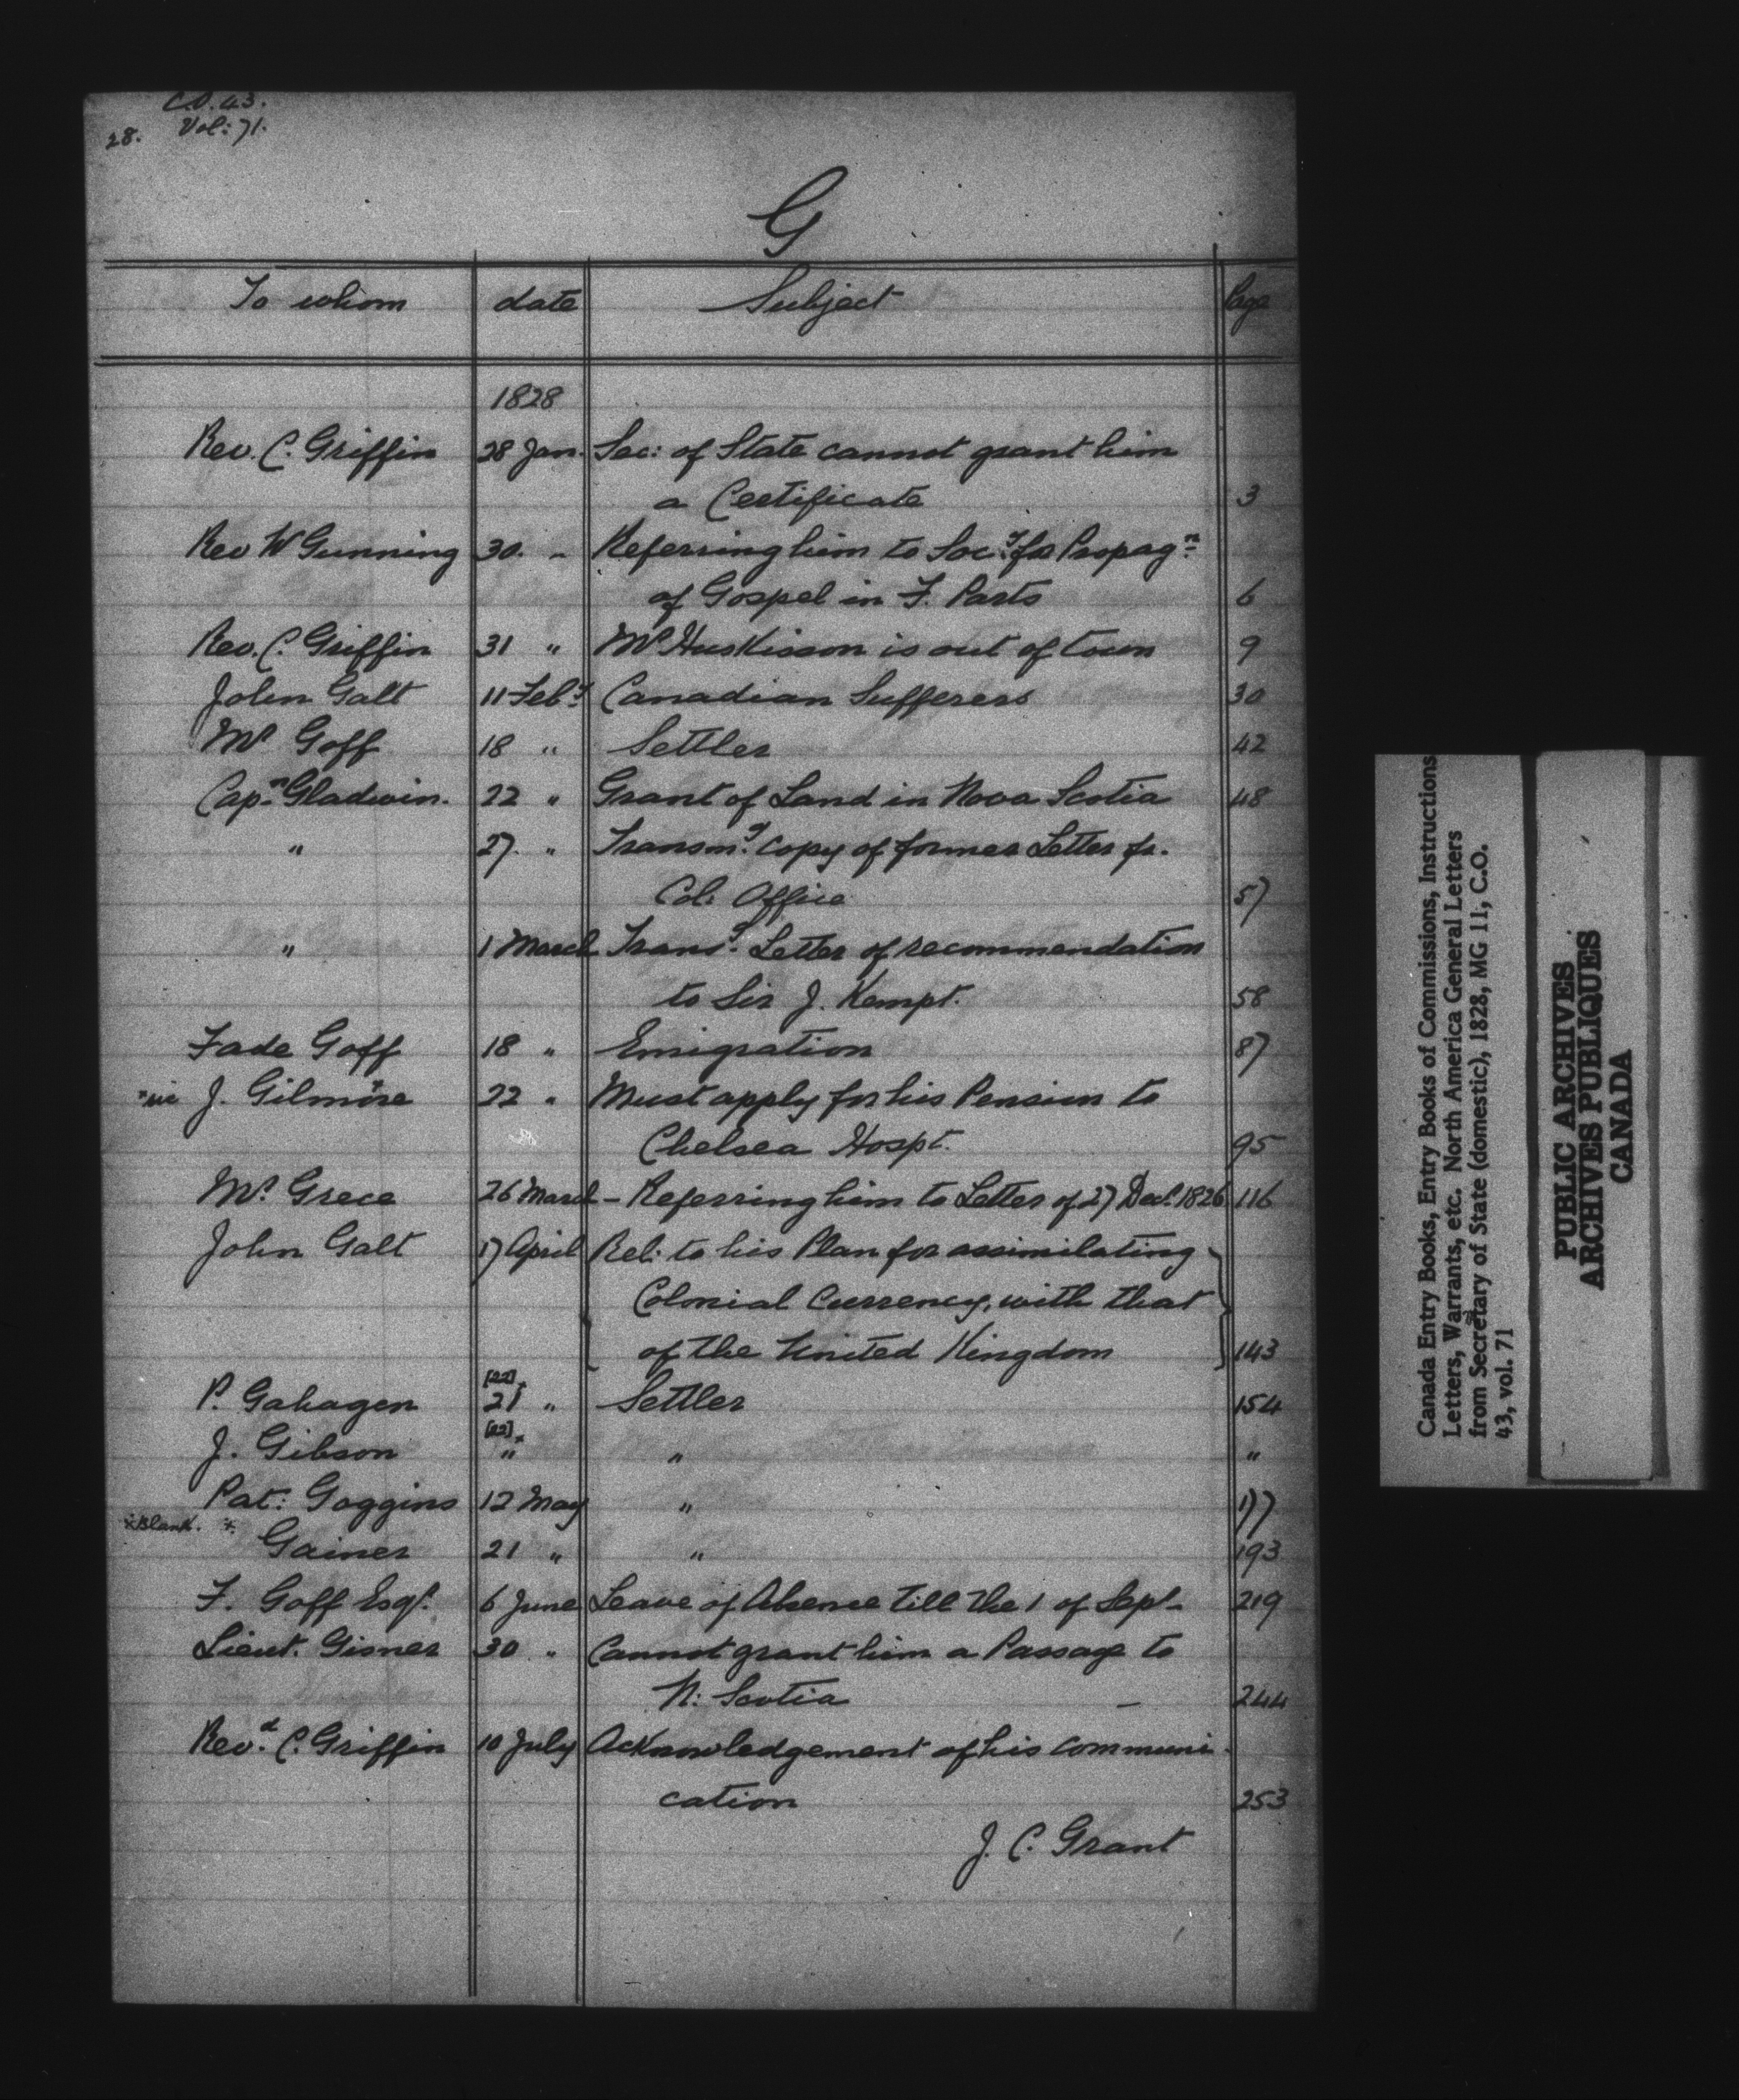 C.O. 43.
28. Vol: 71.
G
To whom date Subject Page
1828
Rev. C. Griffin 28 Jan. Sec: of State cannot grant him
a Certificate 3
Rev W Gunning 30. - Referring him to Socy. for Propagn.
of Gospel in F. Parts 6
Rev. C. Griffin 31 " Mr Huskisson is out of town 9
John Galt 11 Feby. Canadian Sufferers 30
Mr Goff 18 " Settler 42
Capn. Gladwin. 22 " Grant of Land in Nova Scotia 48
" 27. " Transmg. Copy of former Letter fr.
Col: Office 57
" 1 March Transg. Letter of recommendation
to Sir J. Kempt. 58
Fade Goff 18 " Emigration 87
*sic J. Gilmore* 22 " Must apply for his Pension to
Chelsea Hospt. 95
Mr. Grece 26 March - Referring him to Letter of 27 Decr. 1826 116
John Galt 17 April Rel: to his Plan for assimilating
Colonial Currency, with that
of the United Kingdom 143
[22]*
P. Gahagen 21 " Settler 154
[22]*
J. Gibson " " "
Pat: Goggins 12 May " 177
*Blank. *
Gainer 21 " " 193
F. Goff Esqr. 6 June Leave of Absence till the 1 of Sept- 219
Lieut. Gisner 30 " Cannot grant him a Passage to
N: Scotia - 244
Revd. C. Griffin 10 July Acknowledgement of his communi-
cation 253
J. C. Grant
Canada Entry Books, Entry Books of Commissions, Instructions
Letters, Warrants, etc. North America General Letters
from Secretary of State (domestic), 1828, MG 11, C.O.
43, vol. 71
PUBLIC ARCHIVES
ARCHIVES PUBLIQUES
CANADA